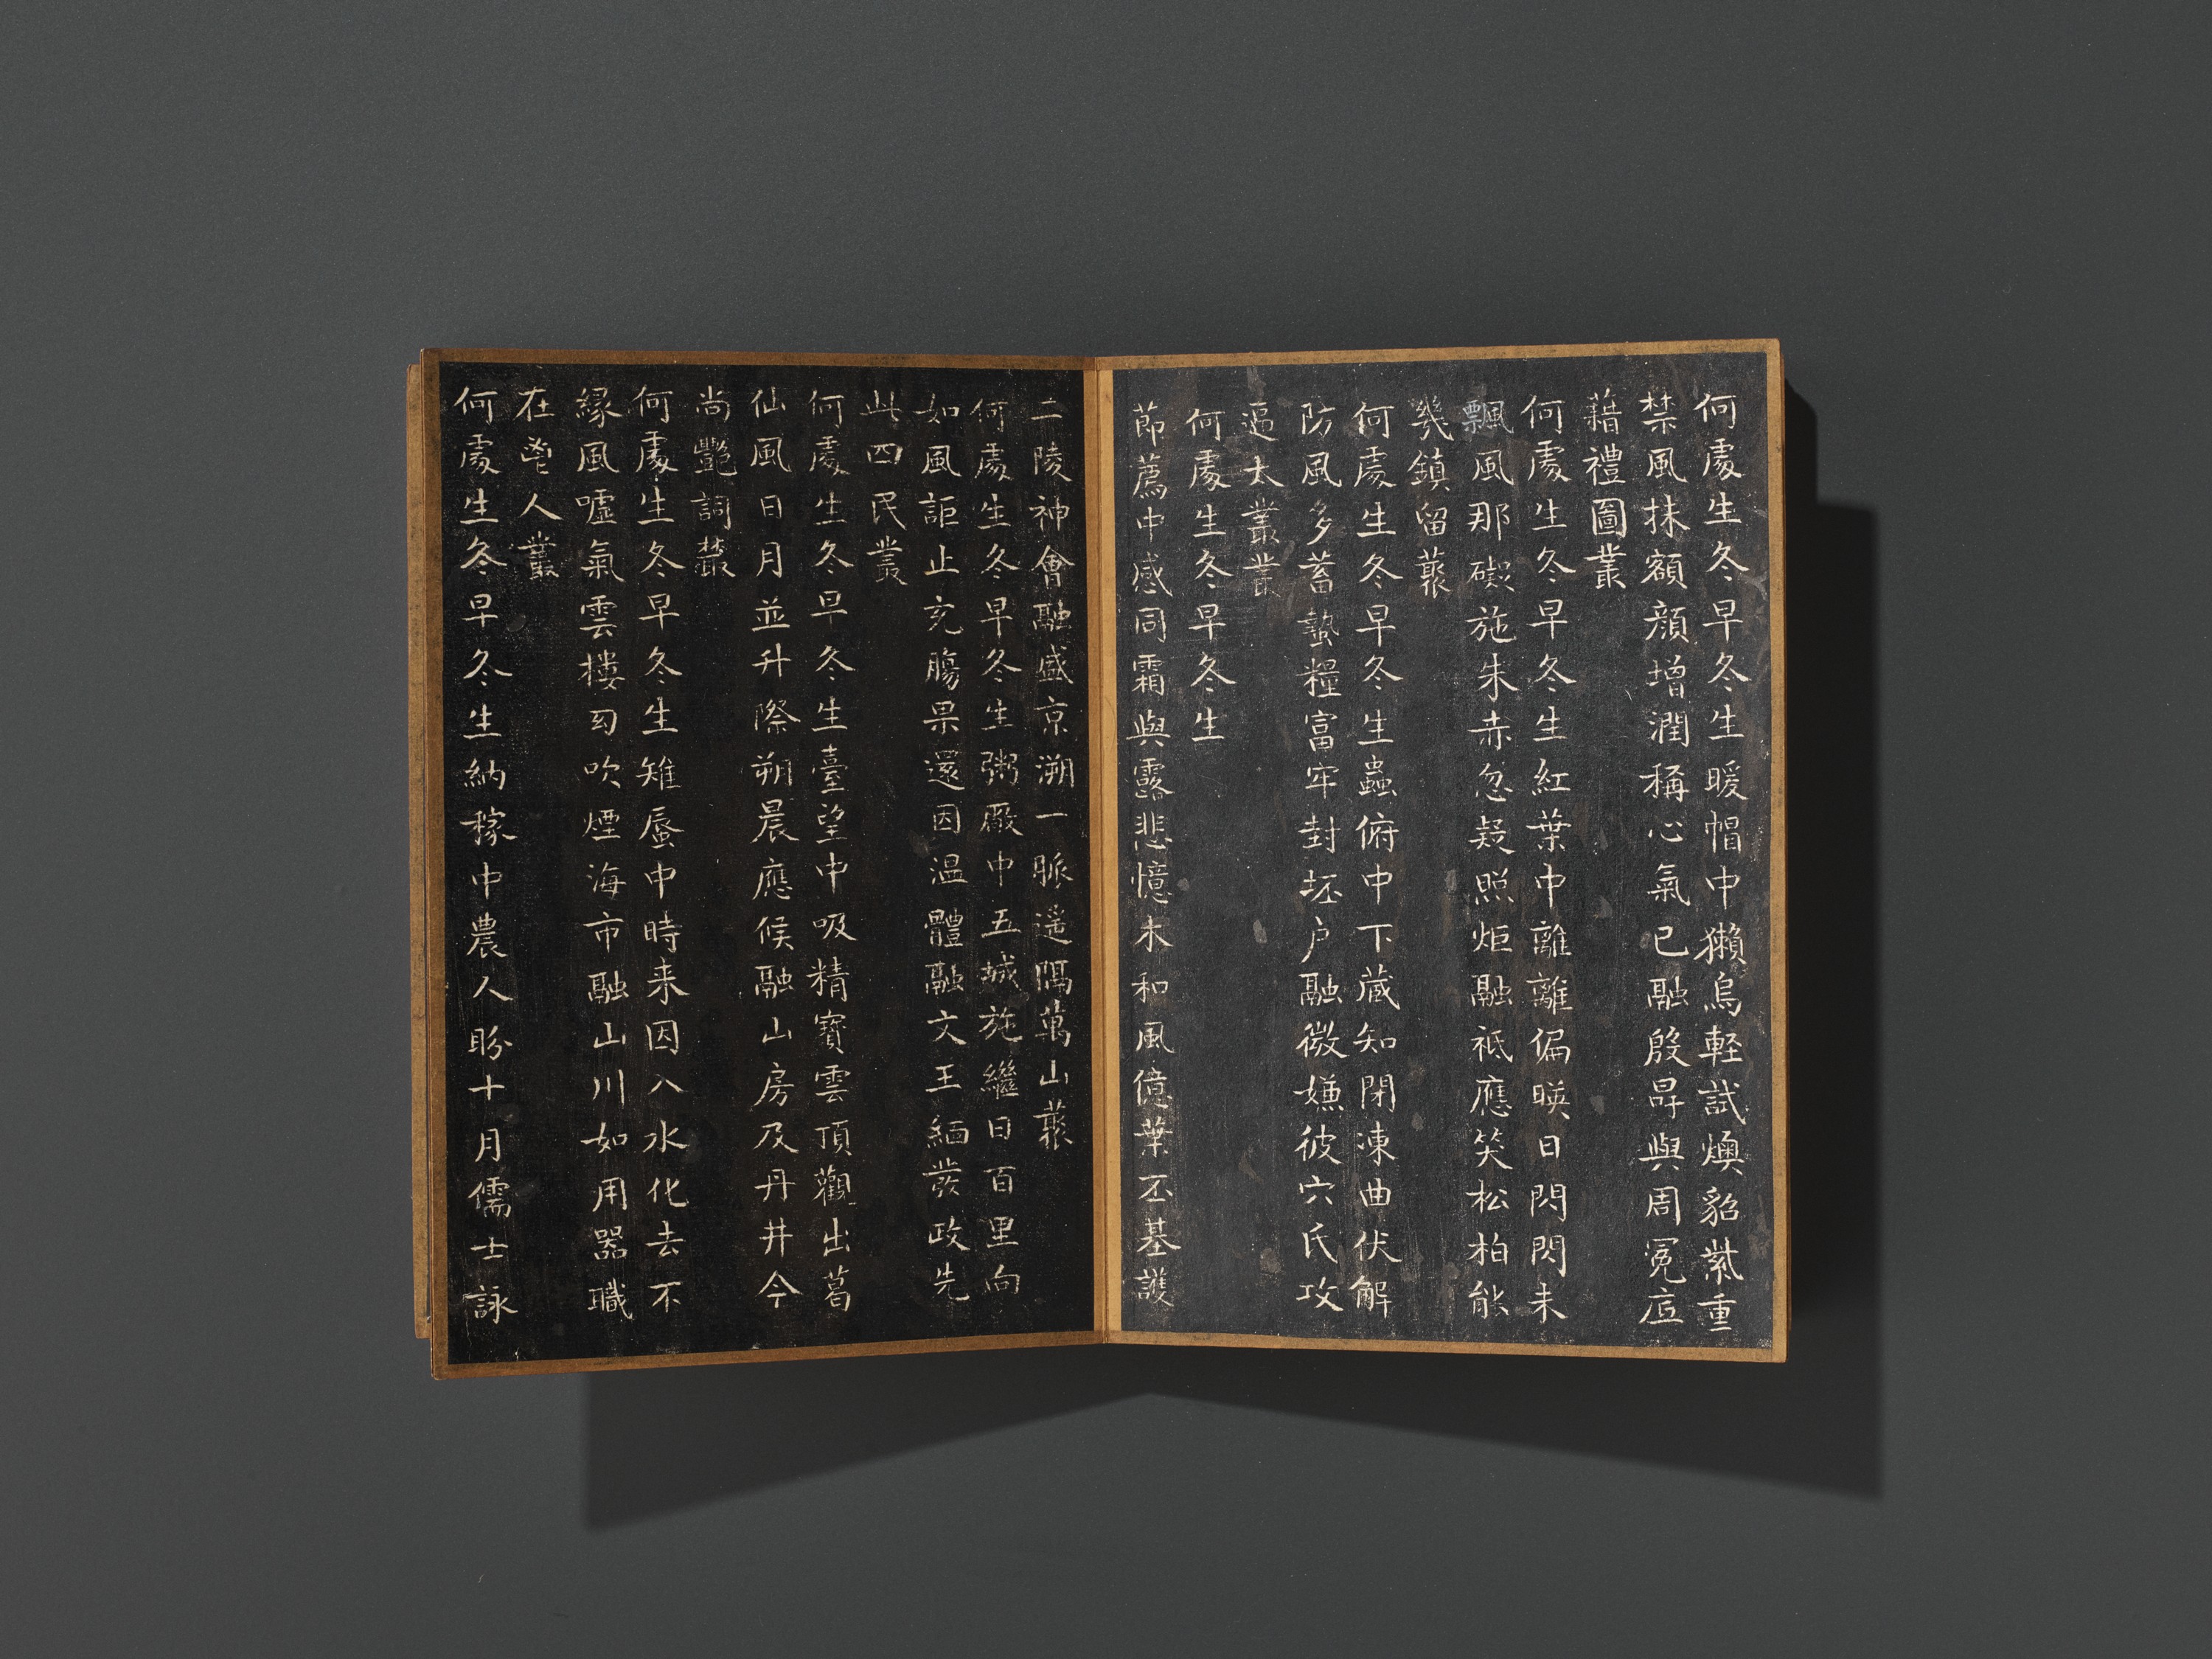 何處生冬早冬生暖帽中獺烏軽試燠貂紫重
禁風抹額顔増潤稱心氣已融殷冔與周冕
藉禮圖叢
何處生冬早冬生紅葉中離離偏暎日閃閃未
飄風那礙施朱赤忽疑照炬融祗應笑松柏能
幾鎮留藂
何處生冬早冬生蟲俯中下蔵知閉凍曲伏解
防風多蓄蟄糧富牢封坯户融微嫌彼穴氏攻
逼太叢叢
何處生冬早冬生
節薦中感同霜與露悲憶未和風億葉丕基護
二陵神會融盛京溯一脈遥隔萬山藂
何處生冬早冬生粥厰中五城施繼日百里向
如風詎止充腸果還因温體融文王緬發政先
此四民叢
何處生冬早冬生臺望中吸精寶雲頂觀出葛
仙風日月並升際朔晨應候融山房及丹井今
尚艷詞藂
何處生冬早冬生雉蜃中時来因八水化去不
縁風嘘氣雲樓幻吹煙海市融山川如用器職
在邑人叢
何處生冬早冬生納稼中農人盼十月儒士詠